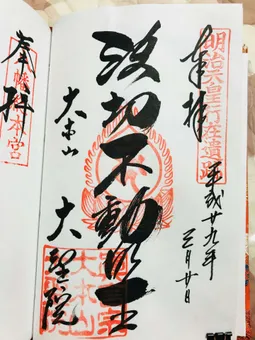 明治天皇行在遺跡
奉拝
平成廿九年
三月廿日
波切不動明王
大本山
大聖院
奉拝